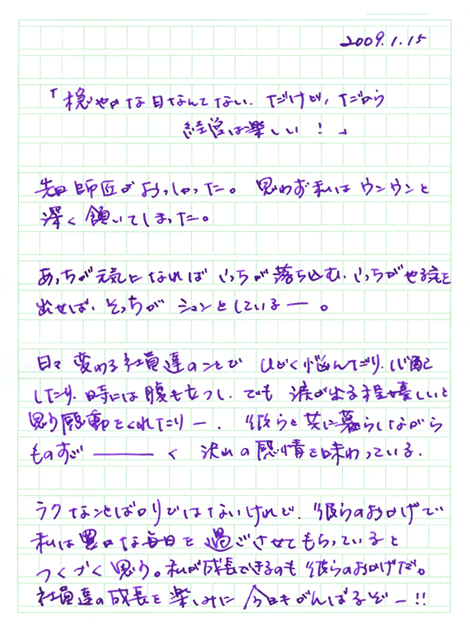 2009.1.15
「穏やかな日なんてない。だけど、だから
経営は楽しい！」
先日師匠がおっしゃった。思わず私はウンウンと
深く頷いてしまった。
あっちが元気になればこっちが落ち込む、こっちがやる気を
出せば、そっちがシュンとしているー。
日々変わる社員達のことでひどく悩んだり、心配
したり、時には腹も立つし、でも涙が出る程嬉しいと
思う感動をくれたりー、彼らと共に暮らしながら
ものすご―――く沢山の感情を味わっている。
ラクなことばかりではないけれど、彼らのおかげで
私は豊かな毎日を過ごさせてもらっていると
つくづく思う。私が成長できるのも彼らのおかげだ。
社員達の成長を楽しみに今日もがんばるぞー!!